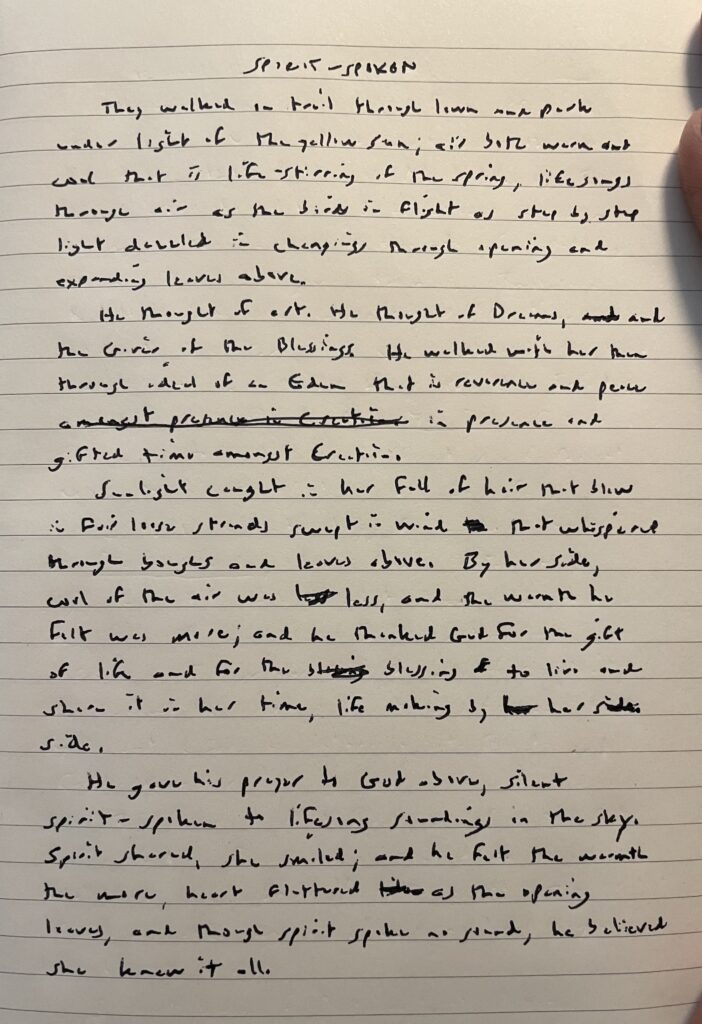 SPIRIT-SPOKEN
They walked on trail through lawn and park
under light of the yellow sun; air both warm and
cool that is life-stirring of the spring, lifesongs
through air as the birds in flight as step by step
light dazzled in changings through opening and
expanding leaves above.
He thought of art. He thought of Dreams, and and
the Giver of the Blessings. He walked with her then
through ideal of an Eden that is reverence and peace
amongst presence in Creation in presence and
gifted time amongst Creation.
Sunlight caught in her fall of hair that blew
in fair loose strands swept in wind that whispered
through boughs and leaves above. By her side,
cool of the air was less, and the warmth he
felt was more; and he thanked God for the gift
of life and for the blessing to live and
share it in her time, life making by her side
side.
He gave his prayer to God above, silent
spirit-spoken to lifesong soundings in the sky.
Spirit shared, she smiled; and he felt the warmth
the more, heart fluttured as the opening
leaves, and though spirit spoke no sound, he believed
she knew it all.